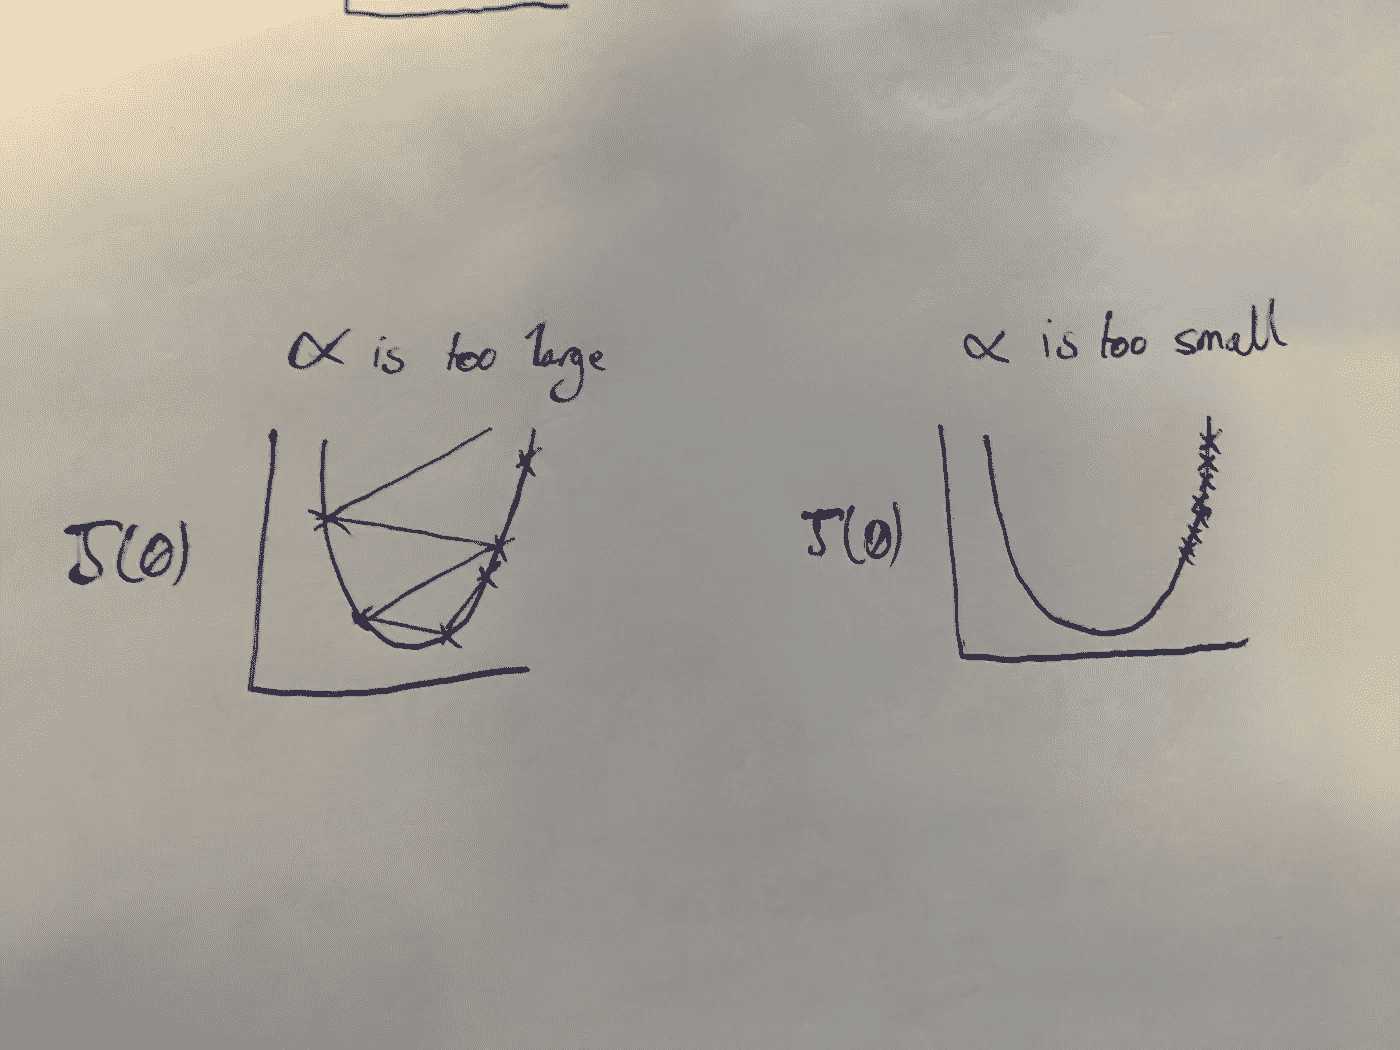 ∝ is too large
J(θ)
∝ is too small
J(θ)